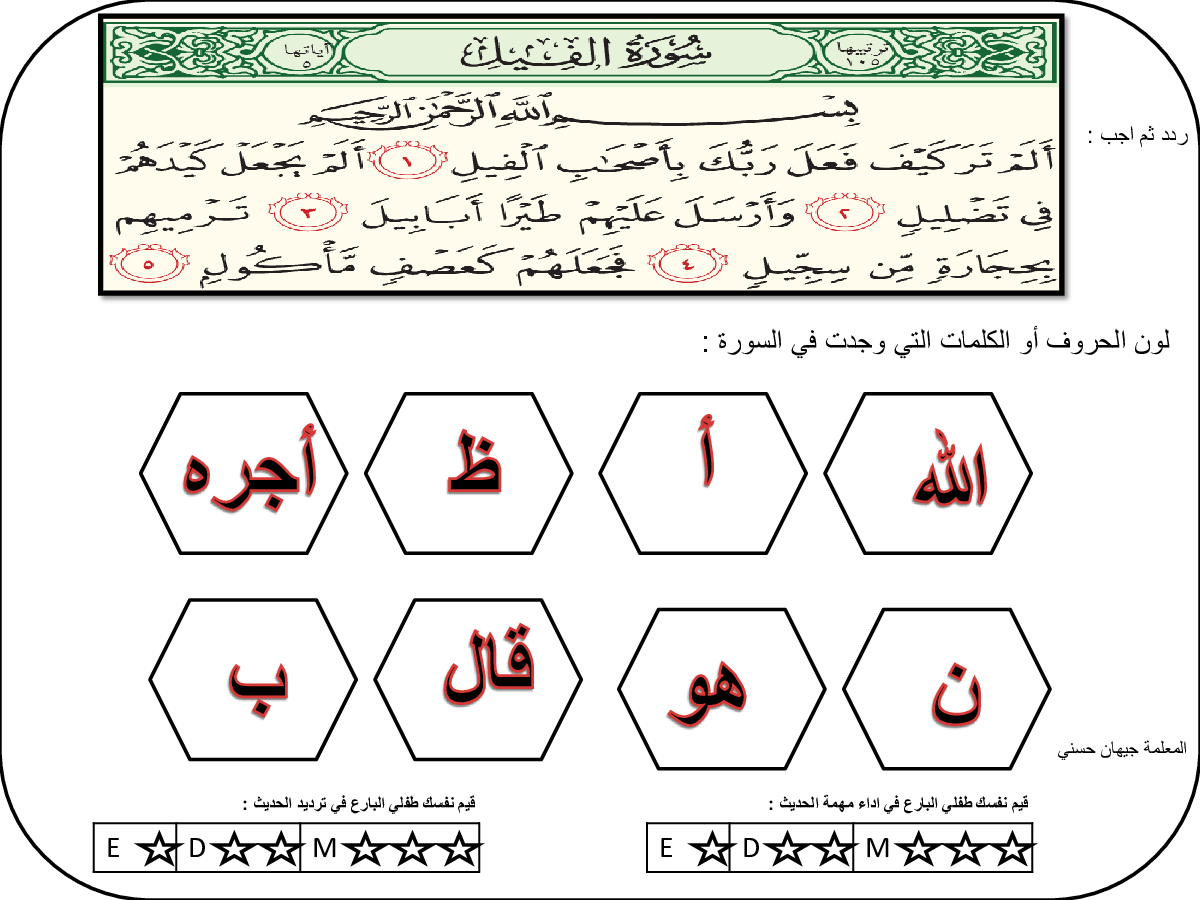 ترتيبها ١٠٥ سُورَةُ الفِيلِ آياتها ٥
بِسْمِ ٱللَّهِ ٱلرَّحْمَٰنِ ٱلرَّحِيمِ
ردد ثم اجب :
أَلَمْ تَرَ كَيْفَ فَعَلَ رَبُّكَ بِأَصْحَٰبِ ٱلْفِيلِ ١ أَلَمْ يَجْعَلْ كَيْدَهُمْ
فِي تَضْلِيلٍ ٢ وَأَرْسَلَ عَلَيْهِمْ طَيْرًا أَبَابِيلَ ٣ تَرْمِيهِم
بِحِجَارَةٍ مِّن سِجِّيلٍ ٤ فَجَعَلَهُمْ كَعَصْفٍ مَّأْكُولٍ ٥
لون الحروف أو الكلمات التي وجدت في السورة :
الله أ ظ أجره
ن هو قال ب
المعلمة جيهان حسني
قيم نفسك طفلي البارع في اداء مهمة الحديث : قيم نفسك طفلي البارع في ترديد الحديث :
E D M E D M